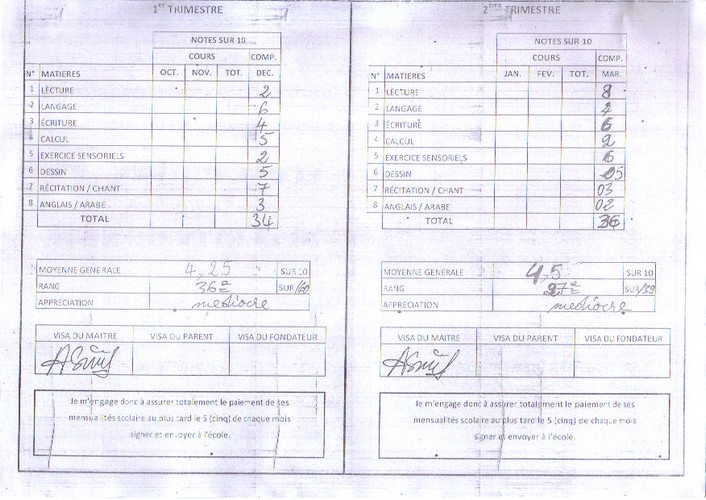 1er TRIMESTRE
NOTES SUR 10
COURS COMP.
N° MATIERES OCT. NOV. TOT. DEC.
1 LECTURE 2
2 LANGAGE 6
3 ÉCRITURE 4
4 CALCUL 5
5 EXERCICE SENSORIELS 2
6 DESSIN 5
7 RÉCITATION / CHANT 7
8 ANGLAIS / ARABE 3
TOTAL 34
MOYENNE GENERALE 4,25 SUR 10
RANG 36e SUR/60
APPRECIATION mediocre
VISA DU MAITRE VISA DU PARENT VISA DU FONDATEUR
Je m'engage donc à assurer totalement le paiement de ses
mensualités scolaire au plus tard le 5 (cinq) de chaque mois
signer et envoyer à l'école.
2ème TRIMESTRE
NOTES SUR 10
COURS COMP.
N° MATIERES JAN. FEV. TOT. MAR.
1 LECTURE 8
2 LANGAGE
3 ÉCRITURE 6
4 CALCUL 2
5 EXERCICE SENSORIELS 6
6 DESSIN 05
7 RÉCITATION / CHANT 03
8 ANGLAIS / ARABE 02
TOTAL 36
MOYENNE GENERALE 4,5 SUR 10
RANG 27e SUR/59
APPRECIATION mediocre
VISA DU MAITRE VISA DU PARENT VISA DU FONDATEUR
Je m'engage donc à assurer totalement le paiement de ses
mensualités scolaire au plus tard le 5 (cinq) de chaque mois
signer et envoyer à l'école.